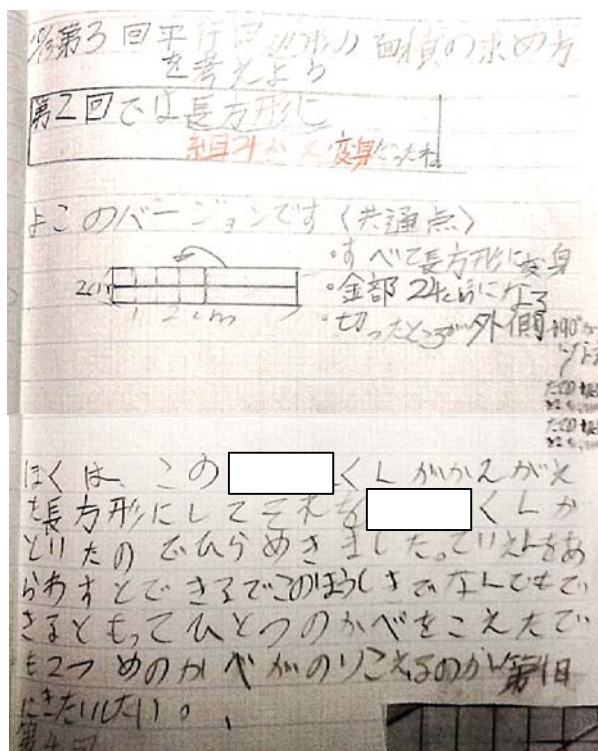 第3回平行四辺形の面積の求め方
を考えよう
第2回では長方形に
変身だったね。
よこのバージョンです〈共通点〉
・すべて長方形に変身
2cm
・全部24cm²になる
12cm
・切ったところが外側
ぼくは、この くんがかんがえ
た長方形にしてそれを くんが
といたのでひらめきました。ていへんをあ
らわすとできるでこのほうしきでなんでもで
きるともってひとつのかべをこえたで
も2つめのかべがのりこえるのが
にきたいしたい。
第4回